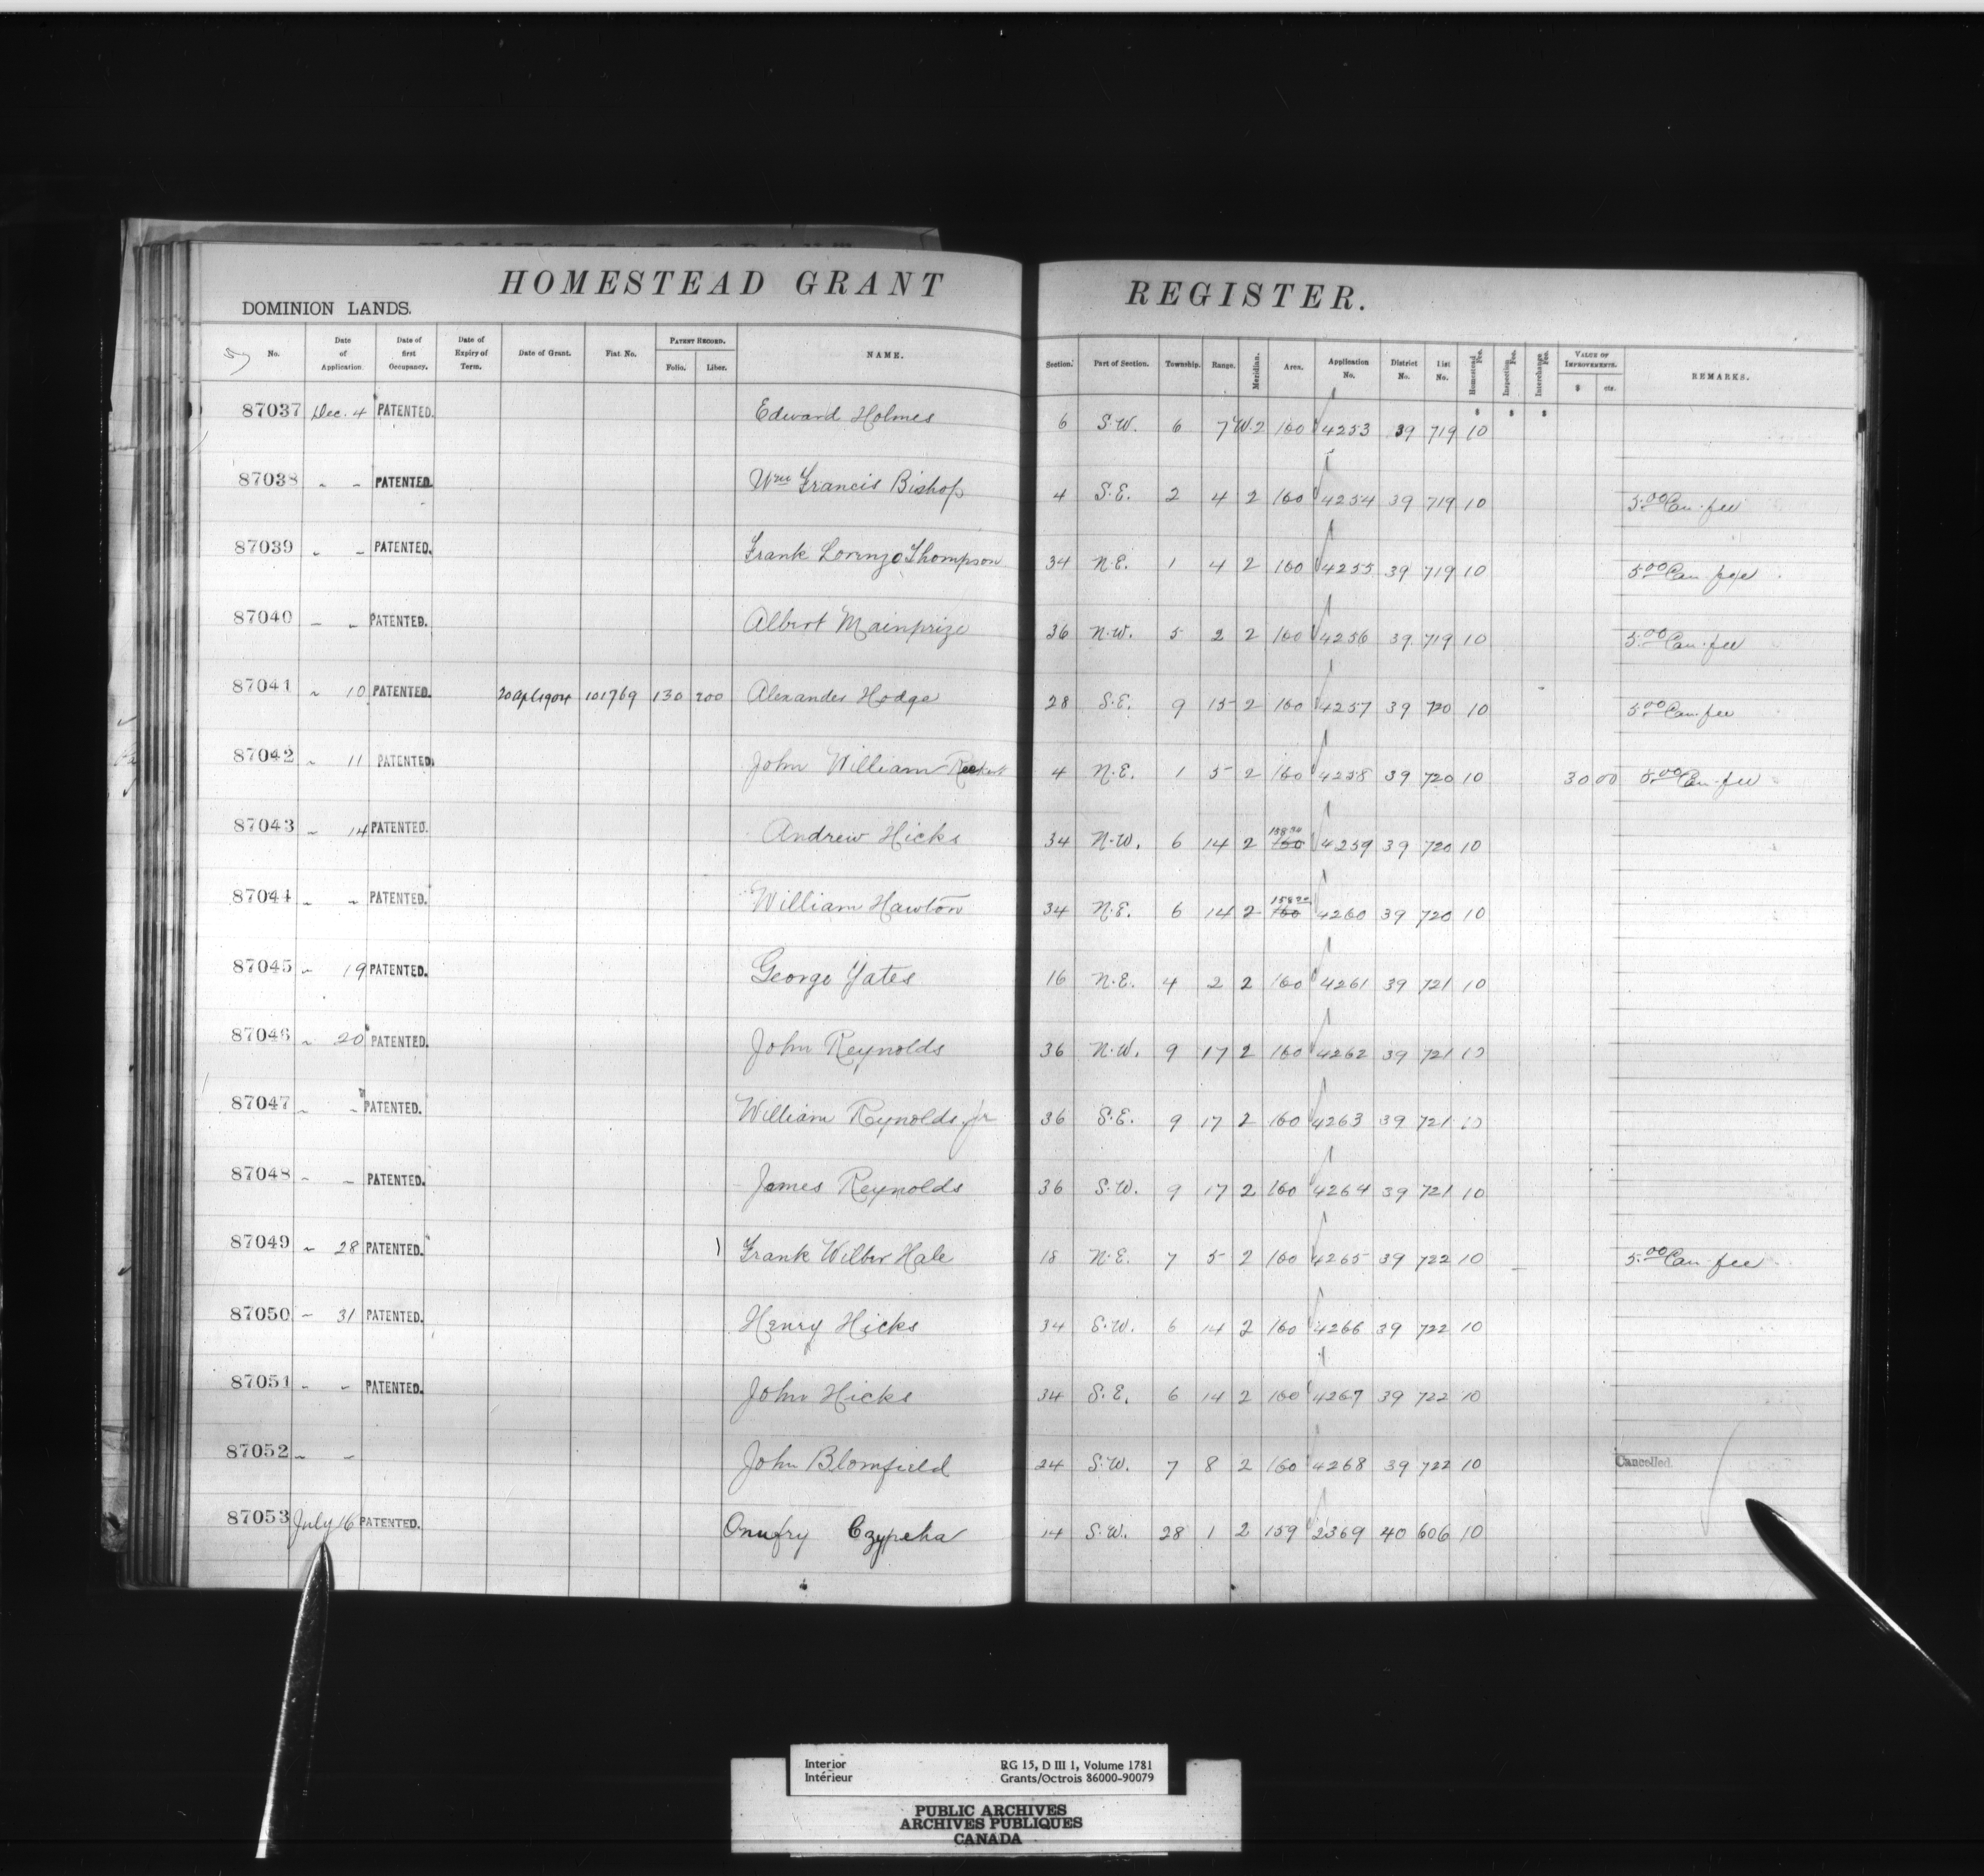 HOMESTEAD GRANT REGISTER.
DOMINION LANDS.
No. Date of Application. Date of first Occupancy. Date of Expiry of Term. Date of Grant. Fiat. No. PATENT RECORD. Folio. Liber. NAME. Section. Part of Section. Township. Range. Meridian. Area. Application No. District No. List No. Homestead Fee. Inspection Fee. Interchange Fee. VALUE OF IMPROVEMENTS. $ cts. REMARKS.
$ $ $
87037 Dec. 4 PATENTED. Edward Holmes 6 S.W. 6 7 W.2 160 4253 39 719 10
87038 " " PATENTED. Wm Francis Bishop 4 S.E. 2 4 2 160 4254 39 719 10 5.00 Can. fee
87039 " " PATENTED. Frank Lorenzo Thompson 34 N.E. 1 4 2 160 4255 39 719 10 5.00 Can. fee
87040 " " PATENTED. Albert Mainprize 36 N.W. 5 2 2 160 4256 39 719 10 5.00 Can. fee
87041 " 10 PATENTED. 20 Apl 1904 101769 130 200 Alexander Hodge 28 S.E. 9 15 2 160 4257 39 720 10 5.00 Can. fee
87042 " 11 PATENTED. John William 4 N.E. 1 5 2 160 4258 39 720 10 30 00 5.00 Can. fee
87043 " 14 PATENTED. Andrew Hicks 34 N.W. 6 14 2 160 4259 39 720 10
87044 " " PATENTED. William Hawton 34 N.E. 6 14 2 160 4260 39 720 10
87045 " 19 PATENTED. George Yates 16 N.E. 4 2 2 160 4261 39 721 10
87046 " 20 PATENTED. John Reynolds 36 N.W. 9 17 2 160 4262 39 721 10
87047 " " PATENTED. William Reynolds jr 36 S.E. 9 17 2 160 4263 39 721 10
87048 " " PATENTED. James Reynolds 36 S.W. 9 17 2 160 4264 39 721 10
87049 " 28 PATENTED. Frank Wilber Hale 18 N.E. 7 5 2 160 4265 39 722 10 5.00 Can. fee
87050 " 31 PATENTED. Henry Hicks 34 S.W. 6 14 2 160 4266 39 722 10
87051 " " PATENTED. John Hicks 34 S.E. 6 14 2 160 4267 39 722 10
87052 " " John Blomfield 24 S.W. 7 8 2 160 4268 39 722 10 Cancelled.
87053 July 16 PATENTED. Onufry Czypcha 14 S.W. 28 1 2 159 2369 40 606 10
Interior RG 15, D III 1, Volume 1781
Intérieur Grants/Octrois 86000-90079
PUBLIC ARCHIVES
ARCHIVES PUBLIQUES
CANADA